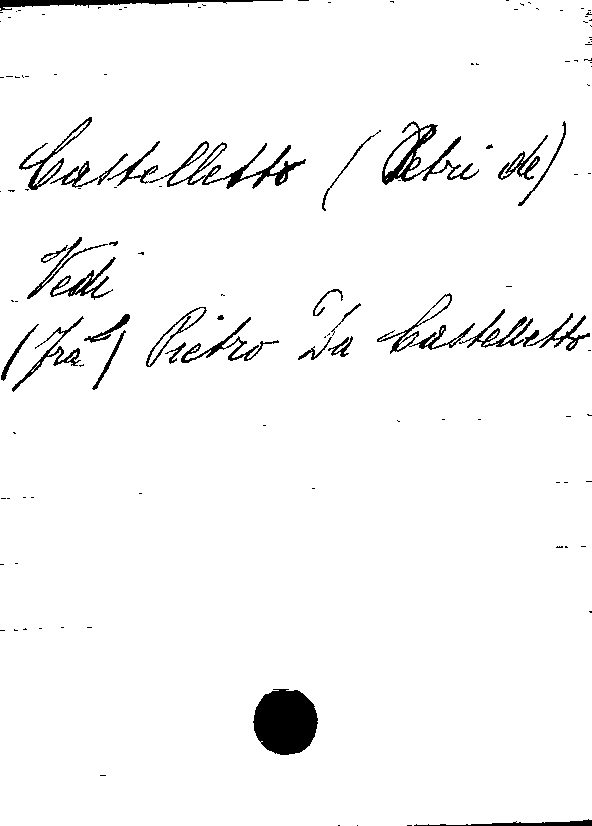 Castelletto (Petri de)
Vedi
(Frà) Pietro Da Castelletto